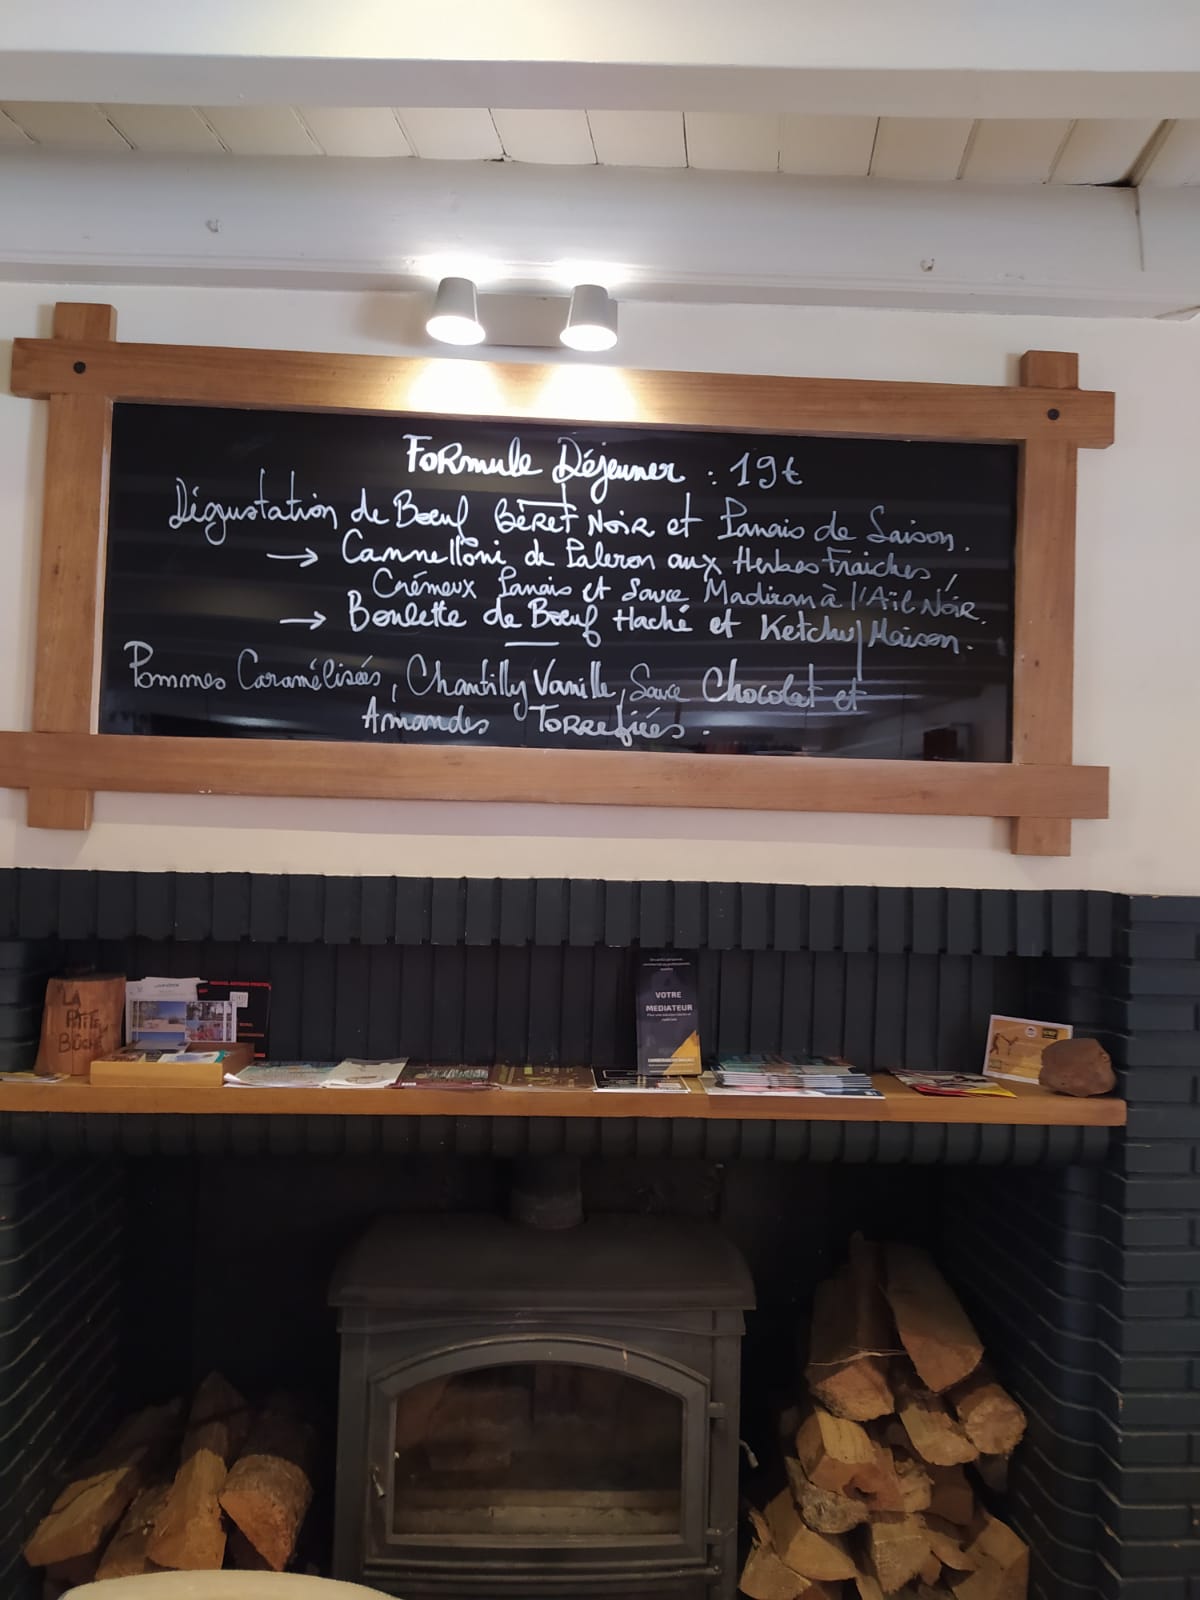 Formule Déjeuner : 19€
Dégustation de Bœuf BÉRET NOIR et Panais de Saison.
→ Cannelloni de Paleron aux Herbes Fraiches,
Crémeux Panais et Sauce Madiran à l'Aïl Noir.
→ Boulette de Bœuf Haché et Ketchup Maison.
Pommes Caramélisées, Chantilly Vanille, Sauce Chocolat et
Amandes Torrefiées.
LA
P'TITE
BÛCHE
VOTRE
MEDIATEUR